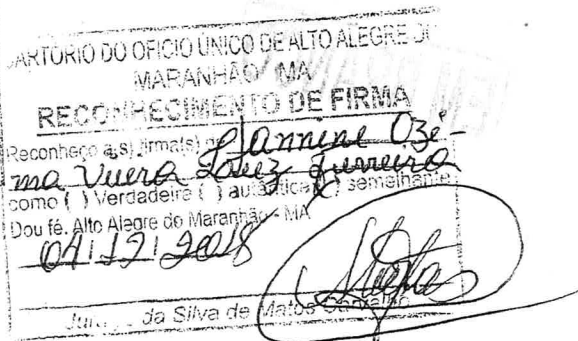 CARTÓRIO DO OFÍCIO ÚNICO DE ALTO ALEGRE DO
MARANHÃO MA
RECONHECIMENTO DE FIRMA
Reconheço a(s) firma(s) de Jannine Ozé-
ma Vieira Ferreira
como ( ) Verdadeira ( ) autêntica ( ) semelhante
Dou fé. Alto Alegre do Maranhão - MA
04 12 2018
da Silva de Matos Carvalho